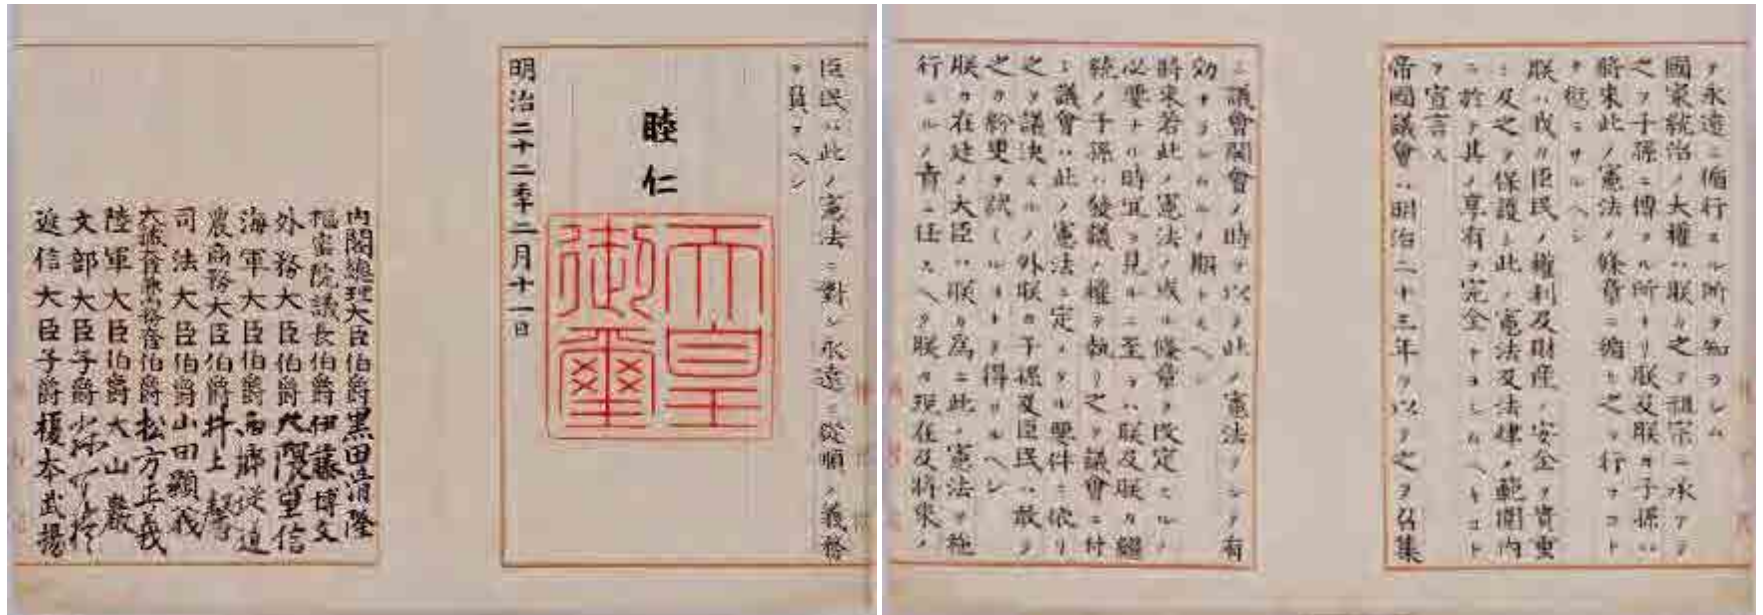 ヲ永遠ニ循行スル所ヲ知ラシム
國家統治ノ大權ハ朕カ之ヲ祖宗ニ承ケテ
之ヲ子孫ニ傳フル所ナリ朕及朕カ子孫ハ
將來此ノ憲法ノ條章ニ循ヒ之ヲ行フコト
ヲ愆ラサルヘシ
朕ハ我カ臣民ノ權利及財産ノ安全ヲ貴重
シ及之ヲ保護シ此ノ憲法及法律ノ範圍内
ニ於テ其ノ享有ヲ完全ナラシムヘキコト
ヲ宣言ス
帝國議會ハ明治二十三年ヲ以テ之ヲ召集
シ議會開會ノ時ヲ以テ此ノ憲法ヲシテ有
効ナラシムルノ期トスヘシ
將來若此ノ憲法ノ或ル條章ヲ改定スルノ
必要ナル時宜ヲ見ルニ至ラハ朕及朕カ繼
統ノ子孫ハ發議ノ權ヲ執リ之ヲ議會ニ付
シ議會ハ此ノ憲法ニ定メタル要件ニ依リ
之ヲ議決スルノ外朕カ子孫及臣民ハ敢テ
之カ紛更ヲ試ミルコトヲ得サルヘシ
朕カ在廷ノ大臣ハ朕カ爲ニ此ノ憲法ヲ施
行スルノ責ニ任スヘク朕カ現在及將來ノ
臣民ハ此ノ憲法ニ對シ永遠ニ從順ノ義務
ヲ負フヘシ
睦仁
天皇
御璽
明治二十二年二月十一日
内閣總理大臣伯爵黑田清隆
樞密院議長伯爵伊藤博文
外務大臣伯爵大隈重信
海軍大臣伯爵西郷從道
農商務大臣伯爵井上馨
司法大臣伯爵山田顯義
大藏大臣兼内務大臣伯爵松方正義
陸軍大臣伯爵大山巖
文部大臣子爵森有禮
遞信大臣子爵榎本武揚